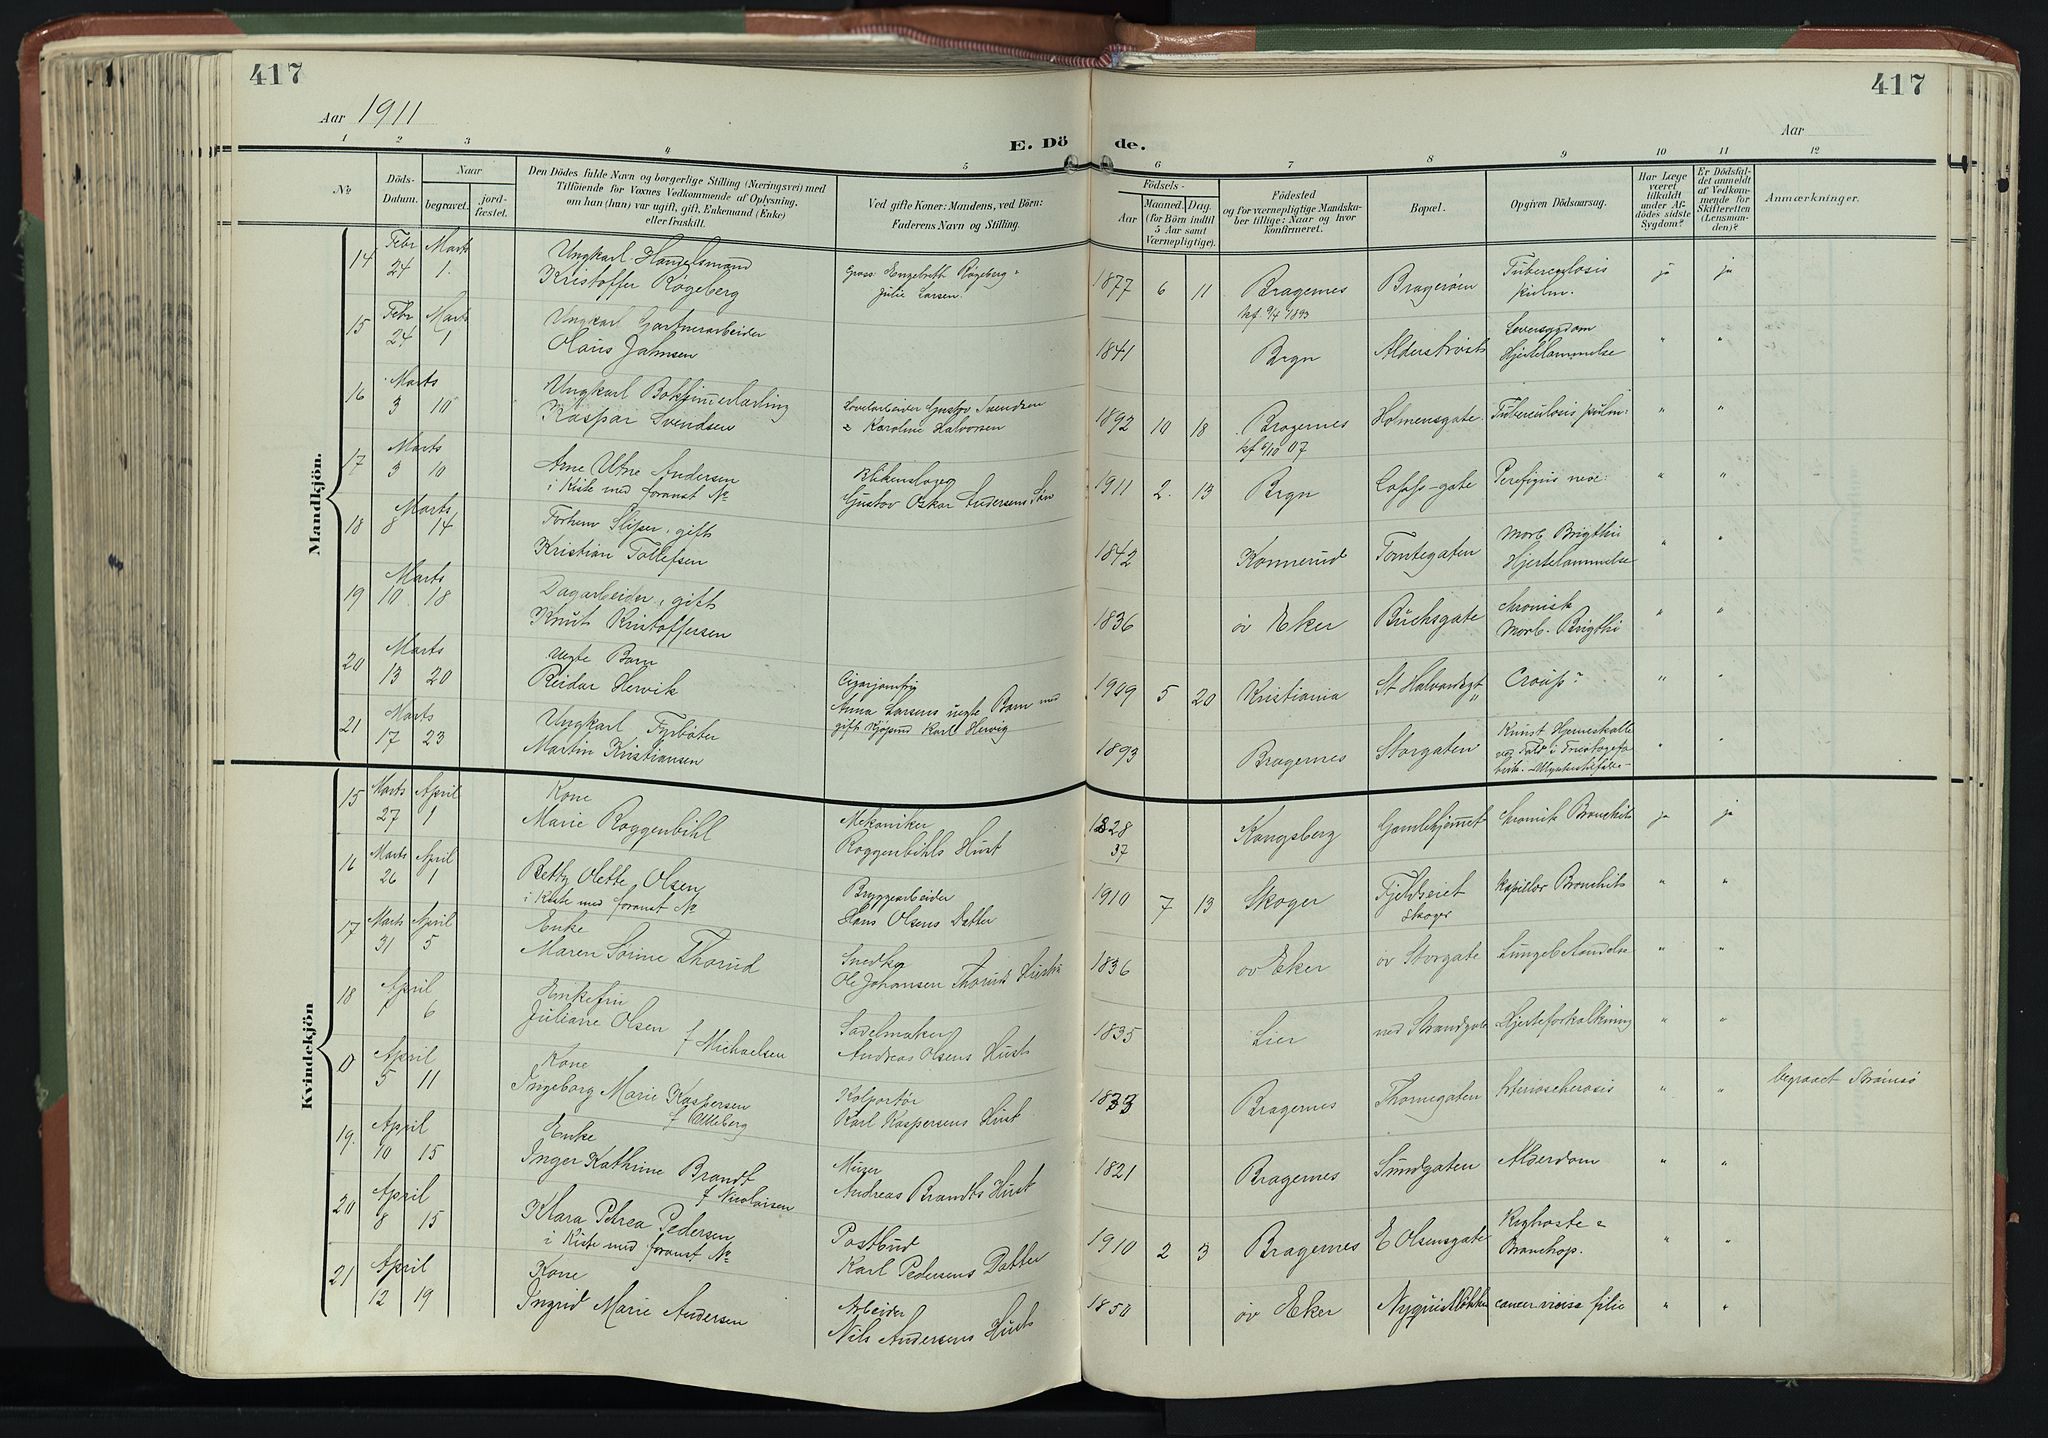 417
417
Aar 1911
Aar
E. Dö de.
1 2 3 4 5 6 7 8 9 10 11 12
No
Döds-Datum.
Naar
begravet. jordfæstet.
Den Dödes fulde Navn og borgerlige Stilling (Næringsvei) med
Tilföiende for Voxnes Vedkommende af Oplysning.
om han (hun) var ugift, gift, Enkemand (Enke)
eller fraskilt.
Ved gifte Koner: Mandens, ved Börn:
Faderens Navn og Stilling.
Födsels-
Aar Maaned. Dag.
(for Börn indtil
5 Aar samt
Værnepligtige).
Födested
og for værnepligtige Mandska-
ber tillige: Naar og hvor
konfirmeret.
Bopæl.
Opgiven Dödsaarsag.
Har Læge
været
tilkaldt
under Af-
dödes sidste
Sygdom?
Er Dödsfal-
det anmeldt
af Vedkom-
mende for
Skifteretten
(Lensman-
den)?
Anmærkninger.
Mandkjön.
14 Febr 24 Marts 1. Ungkarl Handelsmand
Kristoffer Røgeberg
Engebreth Røgeberg
Julie Larsen.
1877 6 11 Bragernes
kf. 9/4 1893
Bragerøen Tuberculosis
pulm. ja ja
15 Febr 24 Marts 1 Ungkarl Gartnerarbeider
Hans Jahnsen
1841 Brgn Alderstrøst Leversygdom
Hjertelammelse " "
16 Marts 3 10 Ungkarl
Kaspar Svendsen
Gustav Svendsen
Karoline Halvorsen
1892 10 18 Bragernes
kf 6/10 07
Holmensgate. Tuberculosis pulm: " "
17 Marts 3 10 Arne Utne Andersen
i Kiste med foranst No
Blikenslager
Gustav Oskar Andersens Søn
1911 2. 13 Brgn " "
18 Marts 8 14 Forhen Sliper, gift
Kristian Tollefsen
1842 Konnerud Tomtegaten Morb. Brigthii
Hjertelammelse " "
19 Marts 10 18 Dagarbeider, gift
Knut Kristoffersen
1836 øv Eker Buchsgate chronisk
Morb. Brigthii " "
20 Marts 13 20 uegte Barn
Reidar Hervik
Anna Larsens uegte Barn med
gift Karl Hervig
1909 5 20 Kristiania St Halvardsgt Croup " "
21 Marts 17 23 Ungkarl Fyrbøter
Martin Kristiansen
1893 Bragernes Storgaten " "
Kvindekjön
15 Marts 27 April 1 Kone
Marie Roggenbihl
Mekaniker
Roggenbihls Hust
1828
37
Kongsberg Gamlehjemmet chronisk Bronchit ja ja
16 Marts 26 April 1 Betty Olette Olsen
i Kiste med foranst No
Bryggearbeider
Hans Olsens Datter
1910 7 13 Skoger Fjeldseiet
Skoger
Kapillær Bronchit " "
17 Marts 31 April 5 Enke
Maren Sorine Thorud
Snedker
Ole Johansen Thoruds Hustru
1836 øv Eker øv Storgate Lungebetændelse " "
18 April 1 6 Enkefru
Juliane Olsen
f Michaelsen
Sadelmaker
Andreas Olsens Hust
1835 Lier ned Strandgate Hjerteforkalkning " "
0 April 5 11 Kone
Ingeborg Marie Kaspersen
Kolportør
Karl Kaspersens Hust
1833 Bragernes Thornegaten Arterioscherosis " " begravet Strømsø
19. April 10 15 Enke
Inger Kathrine Brandt
f Nicolaisen
Murer
Andreas Brandts Hust
1821 Bragernes Sundgaten Alderdom " "
20 April 8 15 Klara Petrea Pedersen
i Kiste med foranst No
Postbud
Karl Pedersens Datter
1910 2 3 Bragernes E Olsensgate Kighoste
Bronchop. " "
21 April 12 19 Kone
Ingrid Marie Andersen
Arbeider
Nils Andersens Hust
1850 øv Eker Nyquistløkken cancer " "